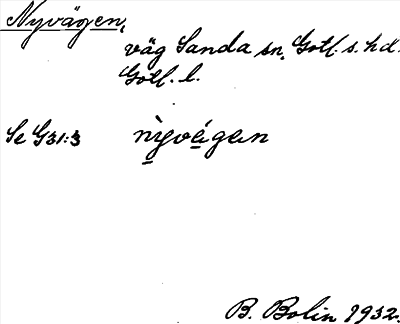 Nyvägen,
väg Sanda sn, Gotl. s. hd.
Gotl. l.
Se G31:3 nyvégan
B. Bolin 1932.